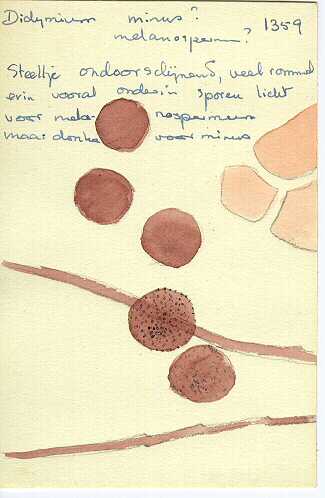 Didymium minus? 1359
melanospermum?
Steeltje ondoorschijnend, veel rommel
erin vooral onderin sporen licht
voor melanospermum
maar donker voor minus